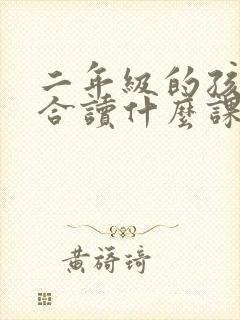 二年級的孩
合讀什麼課
黃嫣琦